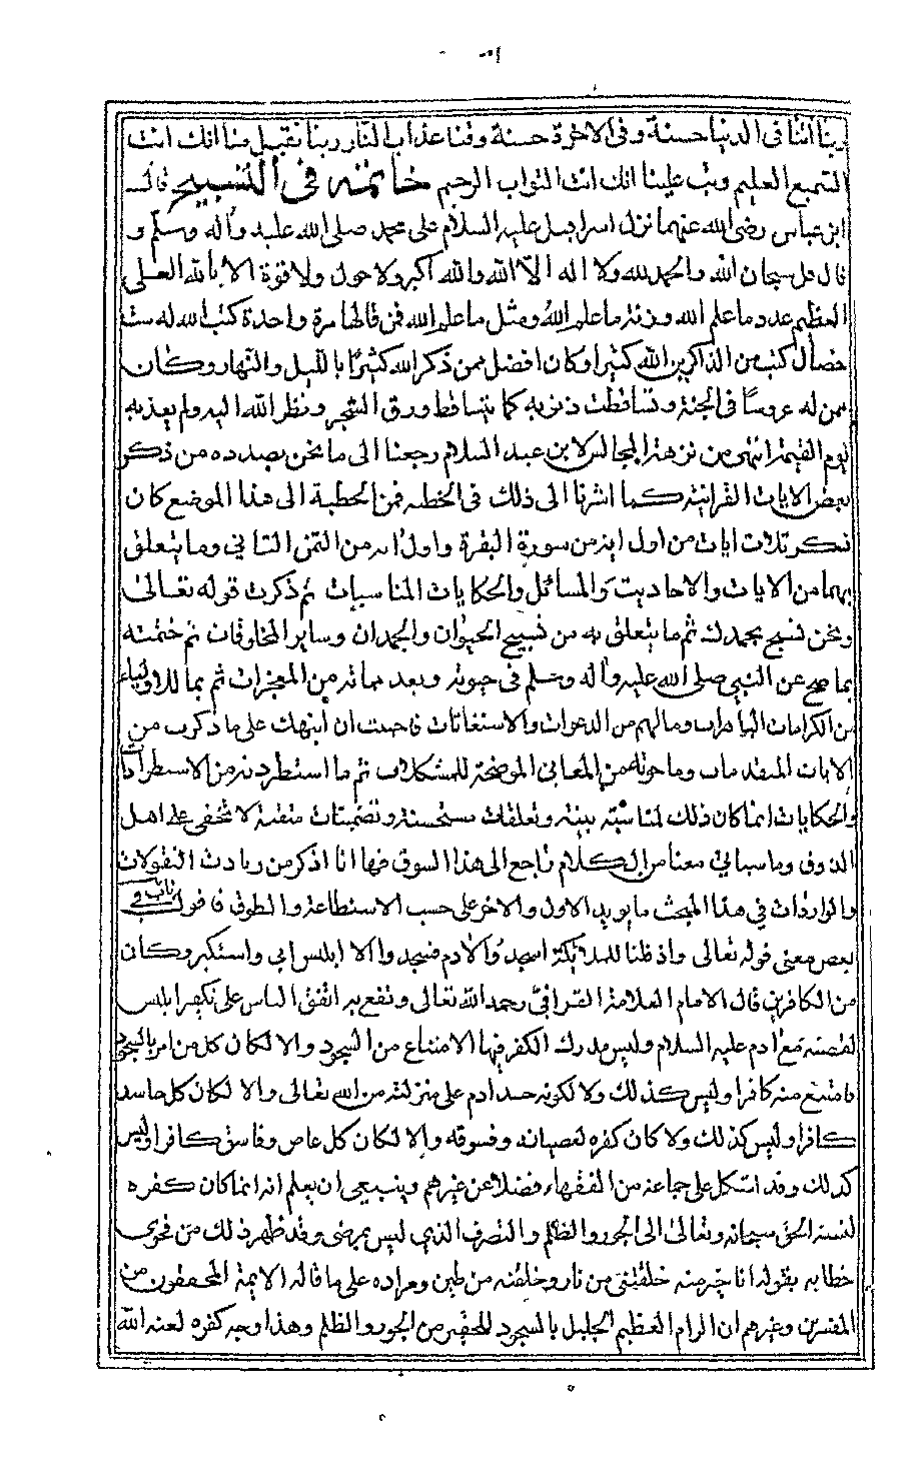 ربنا آتنا فى الدنيا حسنة وفى الاخرة حسنة وقنا عذاب النار ربنا تقبل منا انك انت
السميع العليم وتب علينا انك انت التواب الرحيم خاتمة فى التسبيح قال
ابن عباس رضى الله عنهما نزل اسرافيل عليه السلام على محمد صلى الله عليه وآله وسلم و
قال قل سبحان الله والحمد لله ولا اله الا الله والله اكبر ولا حول ولا قوة الا بالله العلى
العظيم عدد ما علم الله وزنة ما علم الله ومثل ما علم الله فمن قالها مرة واحدة كتب الله له ست
خصال كتب من الذاكرين الله كثيرا وكان افضل ممن ذكر الله كثيرًا بالليل والنهار وكان
ممن له عروسًا فى الجنة وتساقطت ذنوبه كما يتساقط ورق الشجر ونظر الله اليه ولم يعذبه
يوم القيمة انتهى من نزهة المجالس لابن عبد السلام رجعنا الى ما نحن بصدده من ذكر
بعض الايات القرانية كما اشرنا الى ذلك فى الخطبه فمن الخطبة الى هذا الموضع كان
تذكر ثلاث ايات من اول اية من سورة البقرة واول اية من الثمن الثانى وما يتعلق
بهما من الايات والاحاديث والمسائل والحكايات المناسبات ثم ذكرت قوله تعالى
ونحن نسبح بحمدك ثم ما يتعلق به من تسبيح الحيوان والجمدان وساير المخلوقات ثم ختمته
بما صح عن النبى صلى الله عليه وآله وسلم فى حيوته وبعد مماته من المعجزات ثم بما للاولياء
من الكرامات الباهرات وما لهم من الدعوات والاستغاثات فاحببت ان انبهك على ما ذكرت من
الايات المتقدمات وما حوته من المعانى الموضحة للمشكلات ثم ما استطردته من الاستطرادات
والحكايات انما كان ذلك لمناسبة بينة وتعلقات مستحسنة وتضمينات متقنة لا تخفى على اهل
الذوق وما سياتى معنا من الكلام راجع الى هذا السوق فها انا اذكر من زيادت النقولات
والواردات فى هذا المبحث ما يويد الاول والاخر على حسب الاستطاعة والطوق فاقول باب فى
بعض معنى قوله تعالى واذ قلنا للملائكة اسجدوا لآدم فسجدوا الا ابليس ابى واستكبر وكان
من الكافرين قال الامام العلامة القرافى رحمه الله تعالى ونفع به اتفق الناس على تكفير ابليس
لقصته مع آدم عليه السلام وليس مدرك الكفر فيها الامتناع من السجود والا لكان كل من امر بالسجود
فامتنع منه كافرا وليس كذلك ولا لكونه حسد ادم على منزلته من الله تعالى والا لكان كل حاسد
كافرا وليس كذلك ولا كان كفره لعصيانه وفسوقه والا لكان كل عاص وفاسق كافرا وليس
كذلك وقد اشكل على جماعة من الفقهاء فضلا عن غيرهم وينبغى ان يعلم انه انما كان كفره
لنسبة الحق سبحانه وتعالى الى الجور والظلم والتصرف الذى ليس بمرضى وقد ظهر ذلك من فحوى
خطابه بقوله انا خير منه خلقتنى من نار وخلقته من طين ومراده على ما قاله الايمة المحققون من
المفسرين وغيرهم ان الزام العظيم الجليل بالسجود للحقير من الجور والظلم وهذا وجه كفره لعنه الله